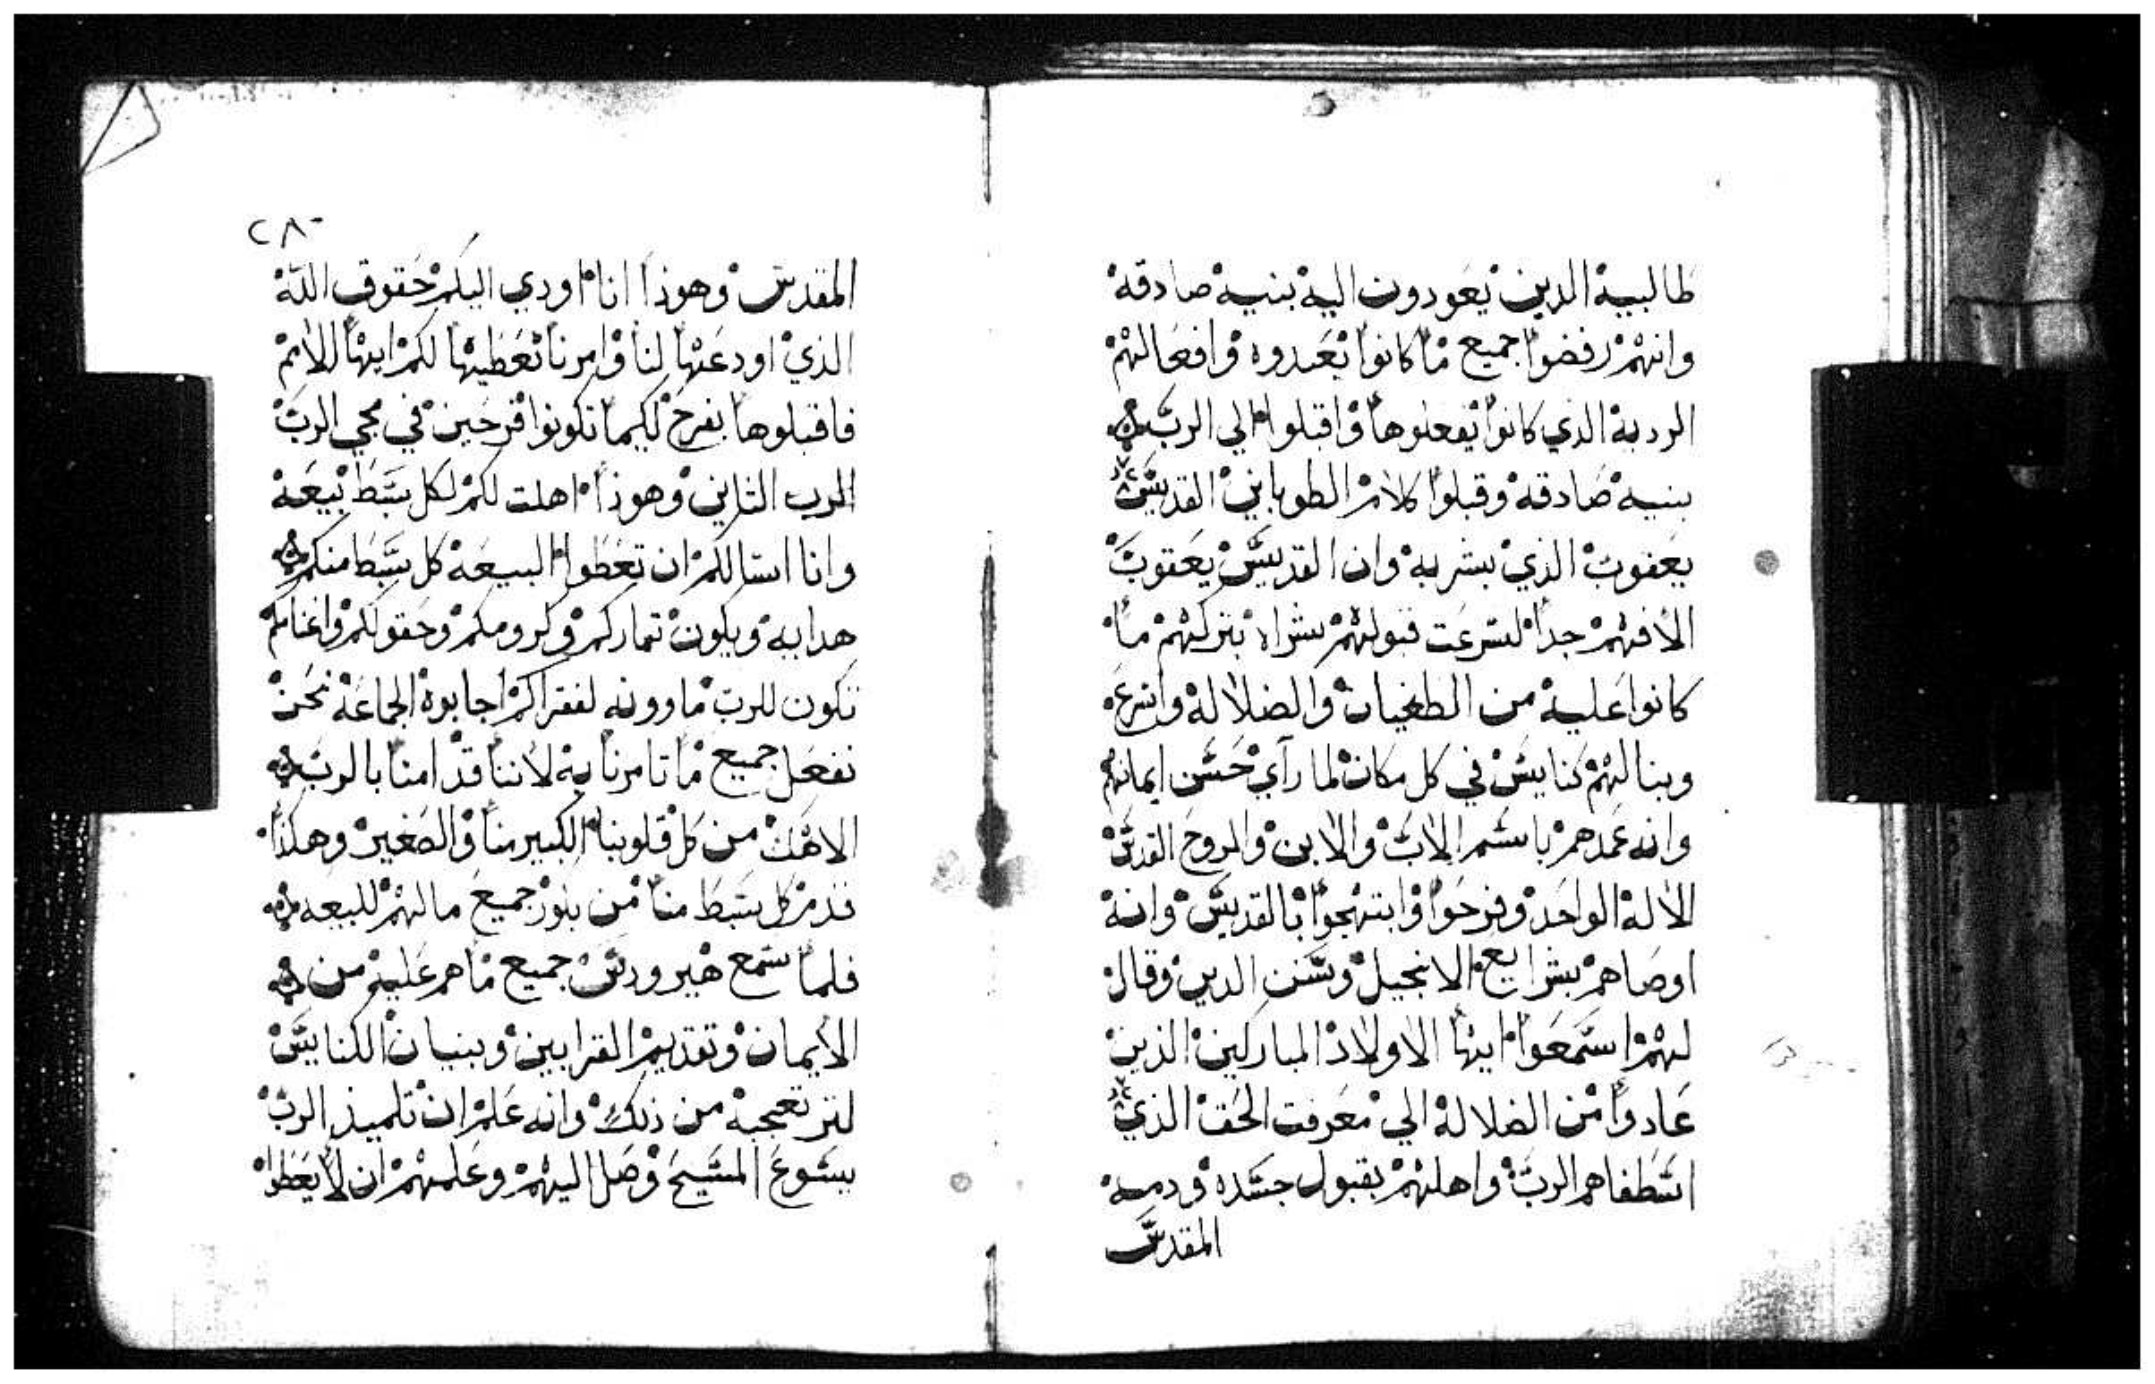 طالبيه الدين يعودون اليه بنيه صادقه
وانهم رفضوا جميع ما كانوا يعبدوه وافعالهم
الرديه الذي كانوا يفعلوها واقبلوا الي الرب
بنيه صادقه وقبلوا كلام الطوباني القديس
يعقوب الذي بشر به وان القديس يعقوب
الافهم جدا لسرعت قبولهم بشراه بتركهم ما
كانوا عليه من الطغيان والضلاله واسرع
وبنا لهم كنايس في كل مكان لما راي حسن ايمانهم
وانه عمدهم باسم الاب والابن والروح القدس
الاله الواحد وفرحوا وابتهجوا بالقديس وانه
اوصاهم بشرايع الانجيل وسنن الدين وقال
لهم اسمعوا ايها الاولاد المباركين الذين
عادوا من الضلاله الي معرفت الحق الذي
اسطفاهم الرب واهلهم بقبول جسده ودمه
المقدس
٢٨٠
المقدس وهوذا انا اودي اليكم حقوق الله
الذي اودعها لنا وامرنا نعطيها لكم ايها الامم
فاقبلوها بفرح لكيما تكونوا فرحين في مجي الرب
الرب التاني وهوذا اهلت لكم لكل سبط بيعه
وانا اسالكم ان تعطوا البيعه كل سبط منكم
هدايه ويكون تماركم وكرومكم وحقولكم واغنامكم
تكون للرب ماوونه لفقراكم اجابوه الجماعه نحن
نفعل جميع ما تامرنا به لاننا قد امنا بالرب
الاهك من كل قلوبنا الكبير منا والصغير وهكذا
قدم كل سبط منا من بكور جميع مالهم للبيعه
فلما سمع هيرودس جميع ما هم عليه من
الايمان وتقديم القرابين وبنيان الكنايس
لتر تعجبه من ذلك وانه علم ان تلميذ الرب
يسوع المسيح وصل اليهم وعلمهم ان لا يعطوا